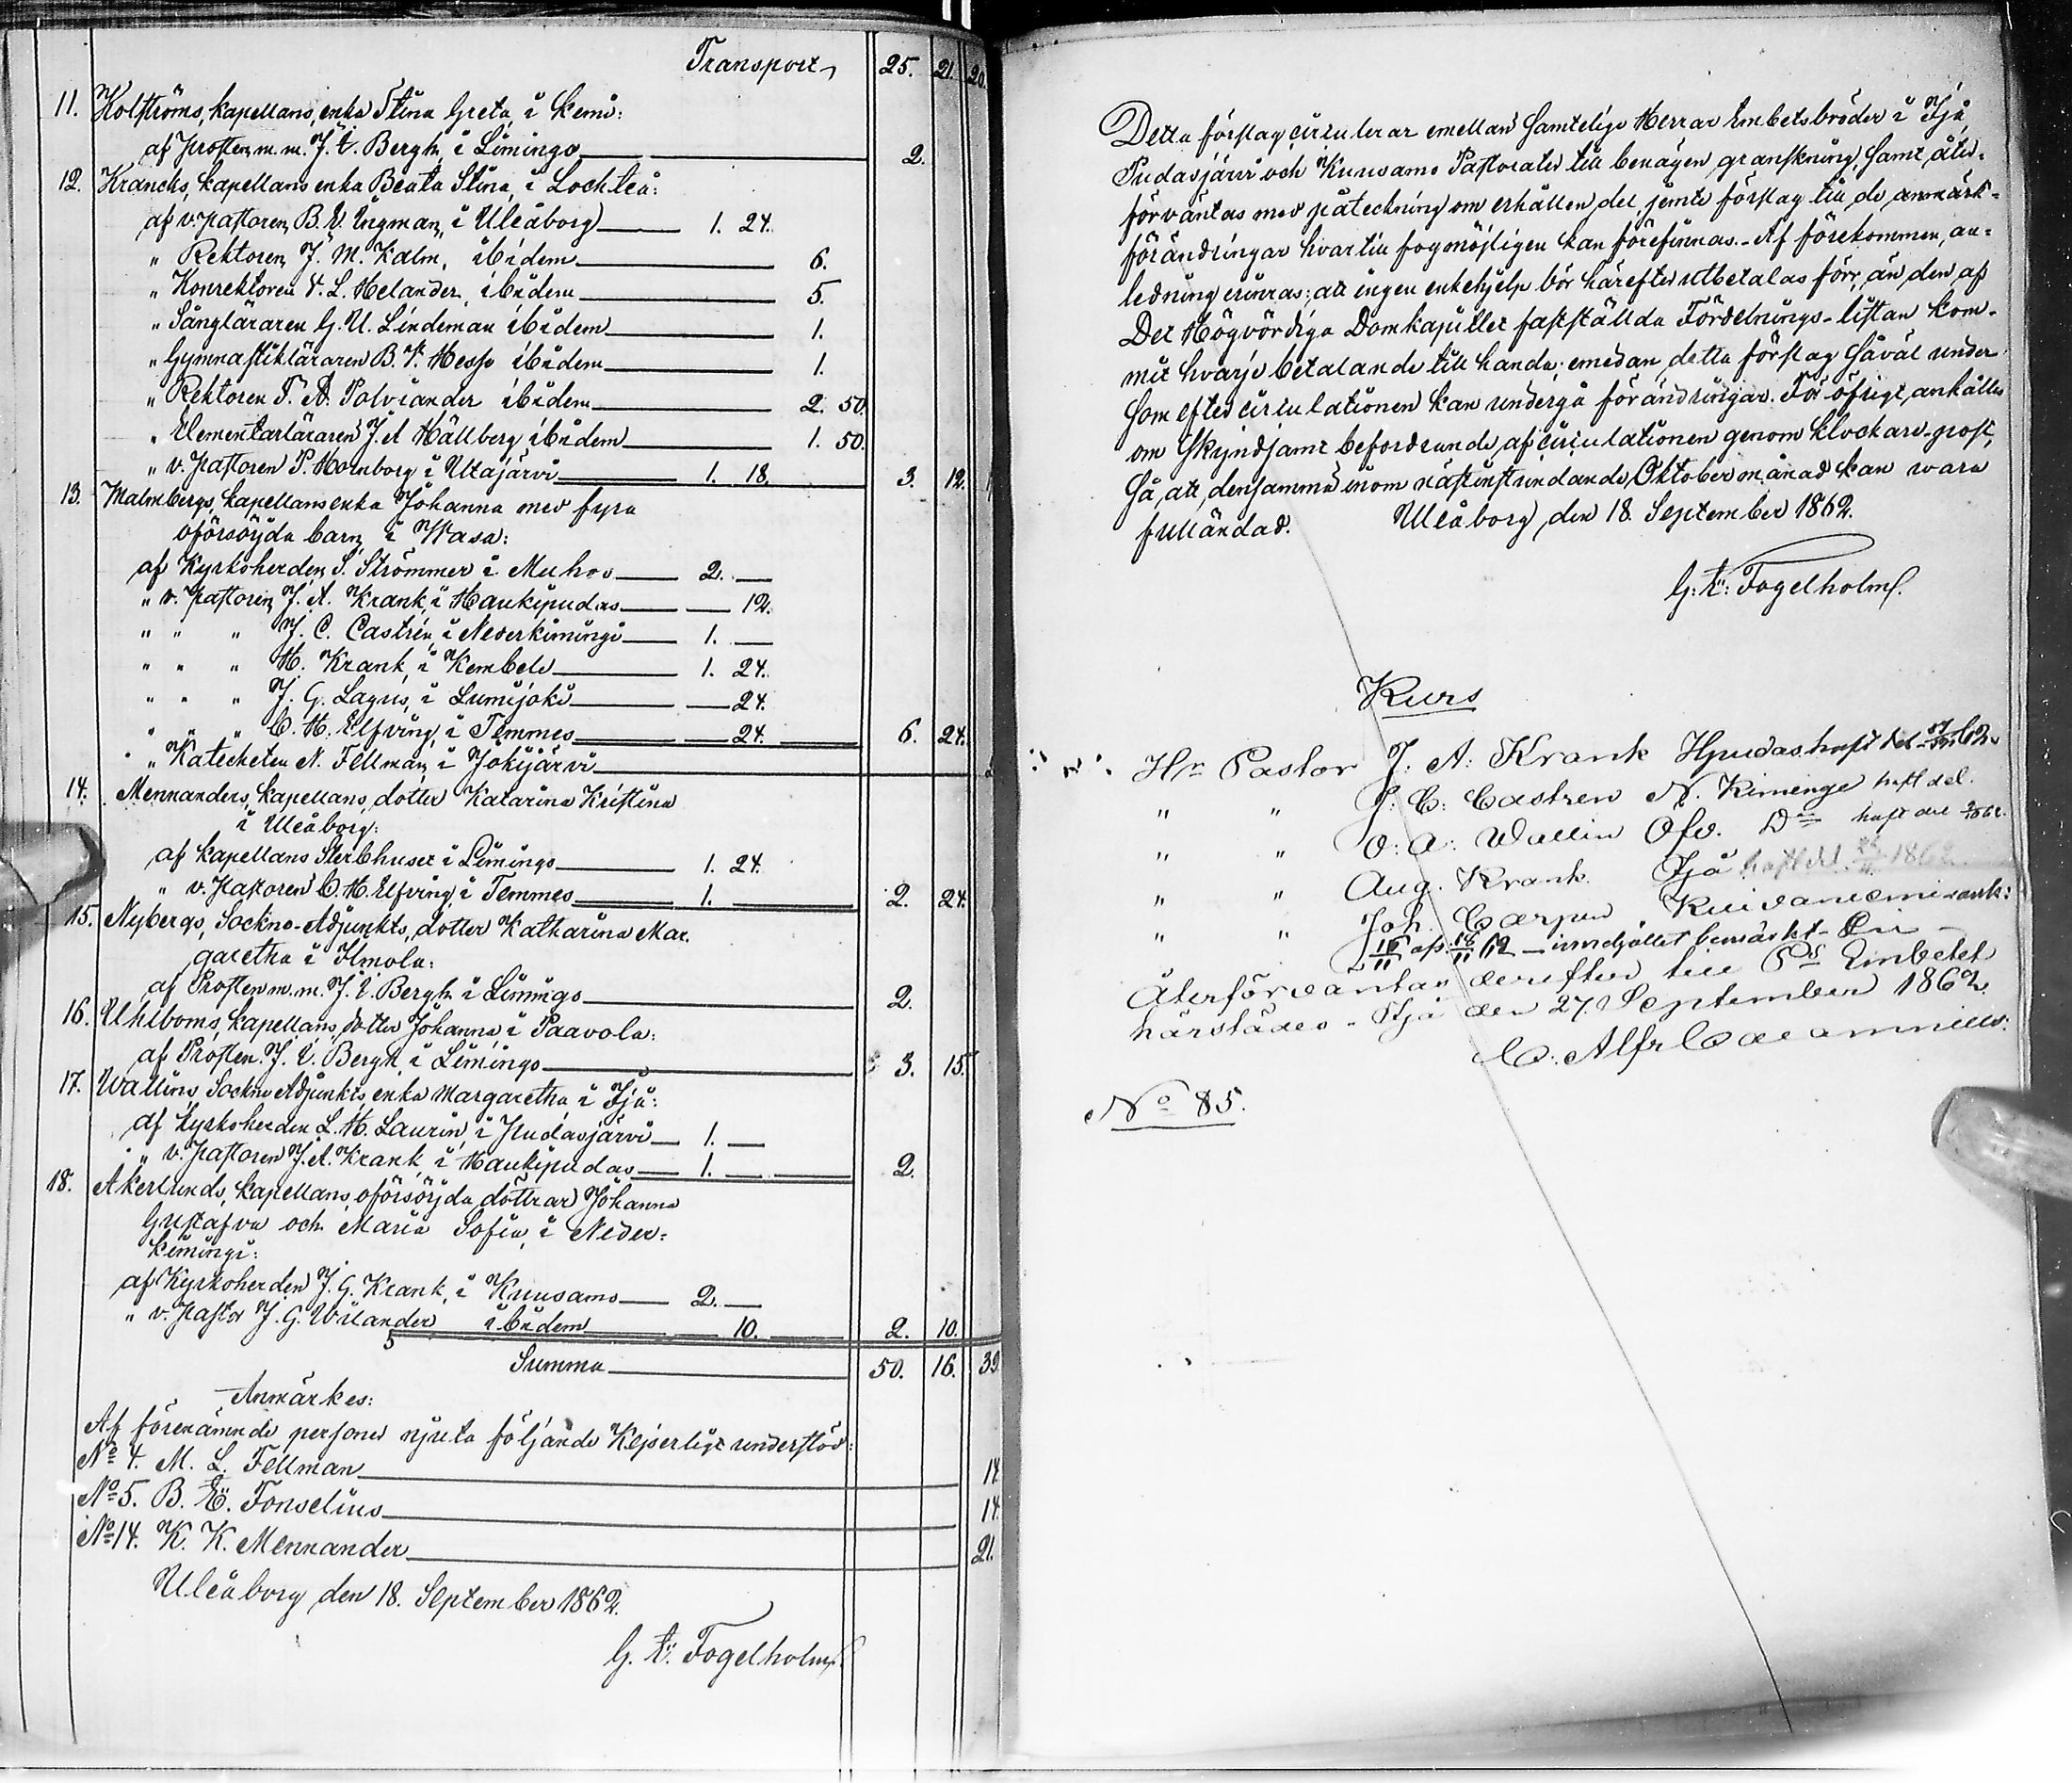 Transport 25. 21. 20.
11. Holströms, kapellans, enka Stina Greta, i Kemi:
af Prosten m. m. J. V. Bergh, i Limingo 2.
12. Krancks, kapellans enka Beata Stina, i Lochteå:
af v. pastoren B. V. Ingman, i Uleåborg 1. 24.
" Rektoren J. M. Kalm, ibidem 6.
" Konrektoren V. L. Helander, ibidem 5.
" Sångläraren G. U. Lindeman ibidem 1.
" Gymnastikläraren B. V. Hesse ibidem 1.
" Rektoren T. A. Polviander ibidem 2. 50.
" Elementarläraren J. A Hällberg ibidem 1. 50.
" v. pastoren P. Hornborg i Utajärvi 1. 18. 3. 12.
13. Malmbergs, kapellans enka Johanna med fyra
oförsörjda barn, i Wasa:
af Kyrkoherden S. Strömmer i Muhos 2. —
" v. pastoren J. A. Krank, i Haukipudas — 12.
" " " J. C. Castrén, i Nederkimingi 1. —
" " " H. Krank, i Kembele 1. 24.
" " " J. G. Lagus, i Lumijoki — 24.
" " " C. H. Elfving, i Temmes — 24. 6. 24.
" Katecheten N. Fellman, i Jokijärvi
14. Mennanders, kapellans, dotter Katarina Kristina
i Uleåborg:
af kapellans Sterbhuset i Limingo 1. 24.
" v. Pastoren C. H. Elfving, i Temmes 1. 2. 24.
15. Nybergs, Sockne-Adjunkts, dotter Katharina Mar.
garetha i Ilmola:
af Prosten m. m. J. V. Bergh i Limingo 2.
16. Uhlboms, kapellans, dotter Johanna i Paavola:
af Prosten J. V. Bergh, i Limingo 3. 15.
17. Wallins, Sockne Adjunkts enka Margaretha, i Ijå:
af Kyrkoherden L. H. Laurin, i Pudasjärvi 1. —
" v. Pastoren J. A. Krank, i Haukipudas 1. — 2.
18. Åkerlunds, kapellans, oförsörjda döttrar Johanna
Gustafva och Maria Sofia, i Neder=
kimingi:
af Kyrkoherden J. G. Krank, i Kuusamo 2. —
" v. Pastor J. G. Wilander ibidem — 10. 2. 10.
Summa 50. 16. 39.
Anmärkes:
Af förenämnde personer njuta följande Kejserligt understöd:
No 4. M. L. Fellman 14.
No 5. B. E. Fonselius 14.
No 14. K. K. Mennander 21.
Uleåborg den 18. September 1862.
G. E. Fogelholm
Detta förslag cirkulerar emellan Samtelige Herrar Embetsbröder i Ijå
Pudasjärvi och Kuusamo Pastorater till benägen granskning, samt åter=
förväntas med påteckning om erhållen del jemte förslag till de anmärk=
förändringar hvartill fogmöjligen kan förefinnas. Af förekommen, an=
ledning erinras: att ingen enkehjelp bör härefter utbetalas förr, än den af
Det Högvördiga Domkapitlet fastställda Fördelnings-listan kom=
mit hvarje betalande till handa; emedan detta förslag såväl under
som efter cirkulationen kan undergå förändringar. För öfrigt, anhålles
om Skyndsamt befordrande af cirkulationen genom klockare-post,
så, att densamma inom nästinstundande Oktober månad kan vara
fulländad. Uleåborg den 18. September 1862.
G: E: Fogelholm.
Kurs
Hr Pastor J: A: Krank Hpudas haft del
" " J: C: Castren N. Kiminge haft del.
" " O: A: Wallin Öfv. Do haft del
" " Aug. Krank Ijå haft del 1862
" " Joh. Carpen Kuivaniemi
innehållet bemärkt
Återförväntas derefter till Embetet
härstädes. Ijå den 27. September 1862.
No 85.